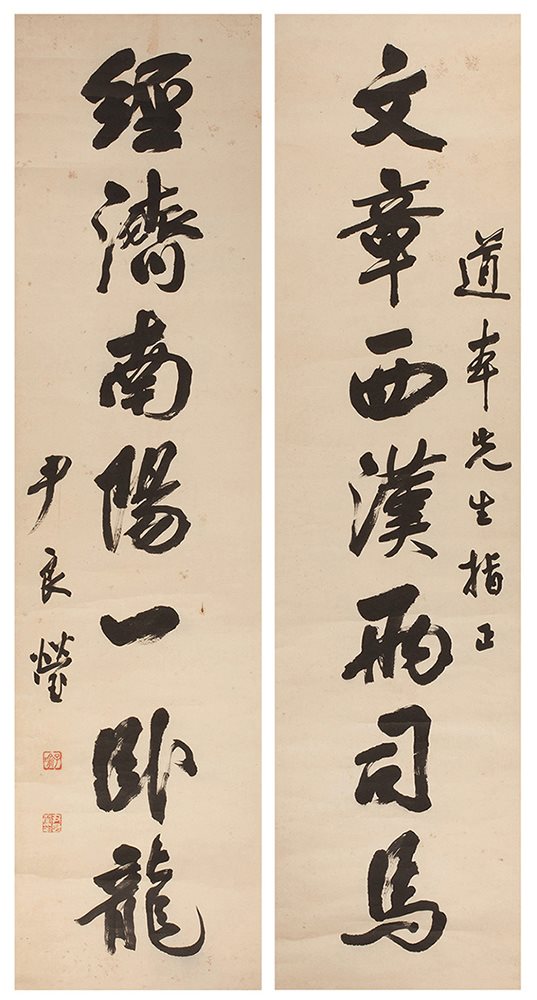 道本先生指正
文章西漢兩司馬
經濟南陽一臥龍
尹良瑩